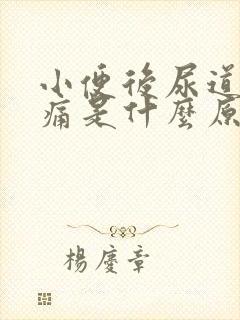 小便後尿道
痛是什麼原
楊慶章